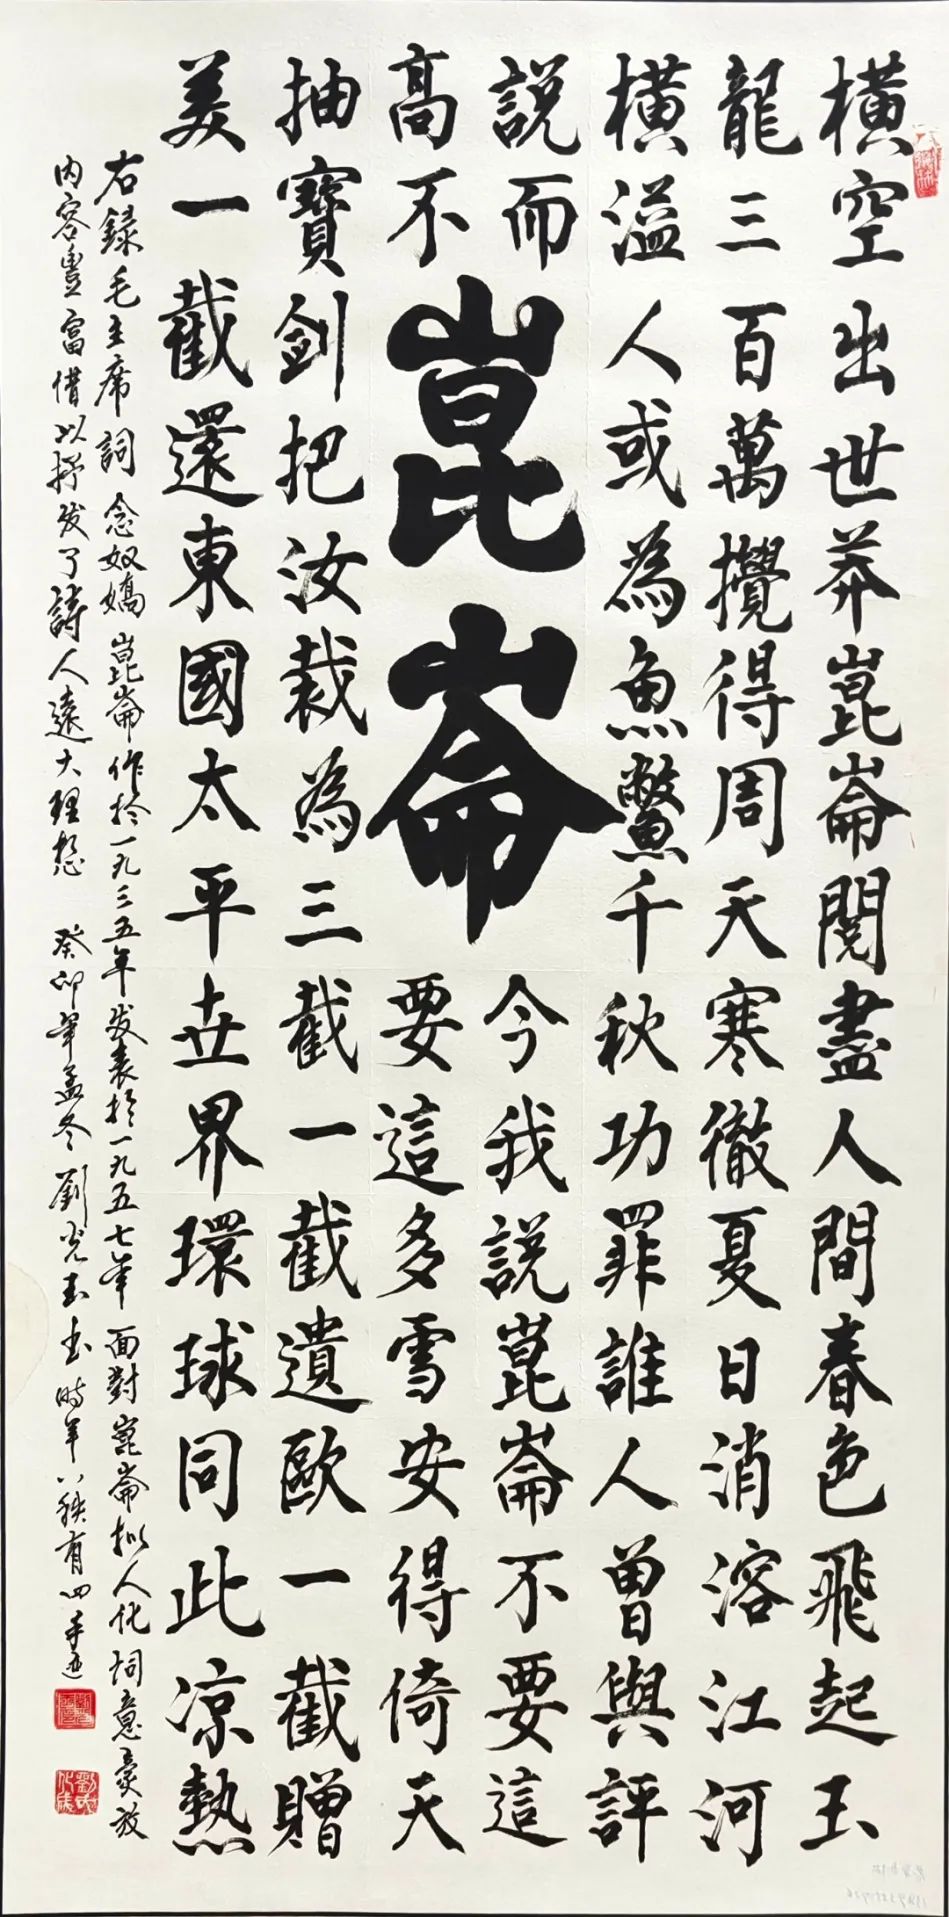 橫空出世莽崑崙閱盡人間春色飛起玉
龍三百萬攪得周天寒徹夏日消溶江河
橫溢人或為魚鱉千秋功罪誰人曾與評
説而
今我説崑崙不要這
高不
要這多雪安得倚天
崑崙
抽寶劍把汝裁為三截一截遺歐一截贈
美一截還東國太平世界環球同此凉熱
右録毛主席詞念奴嬌崑崙作於一九三五年发表於一九五七年面對崑崙拟人化詞意豪放
内容豊富借以抒发了詩人遠大理想 癸卯年孟冬劉光书時年八秩有四